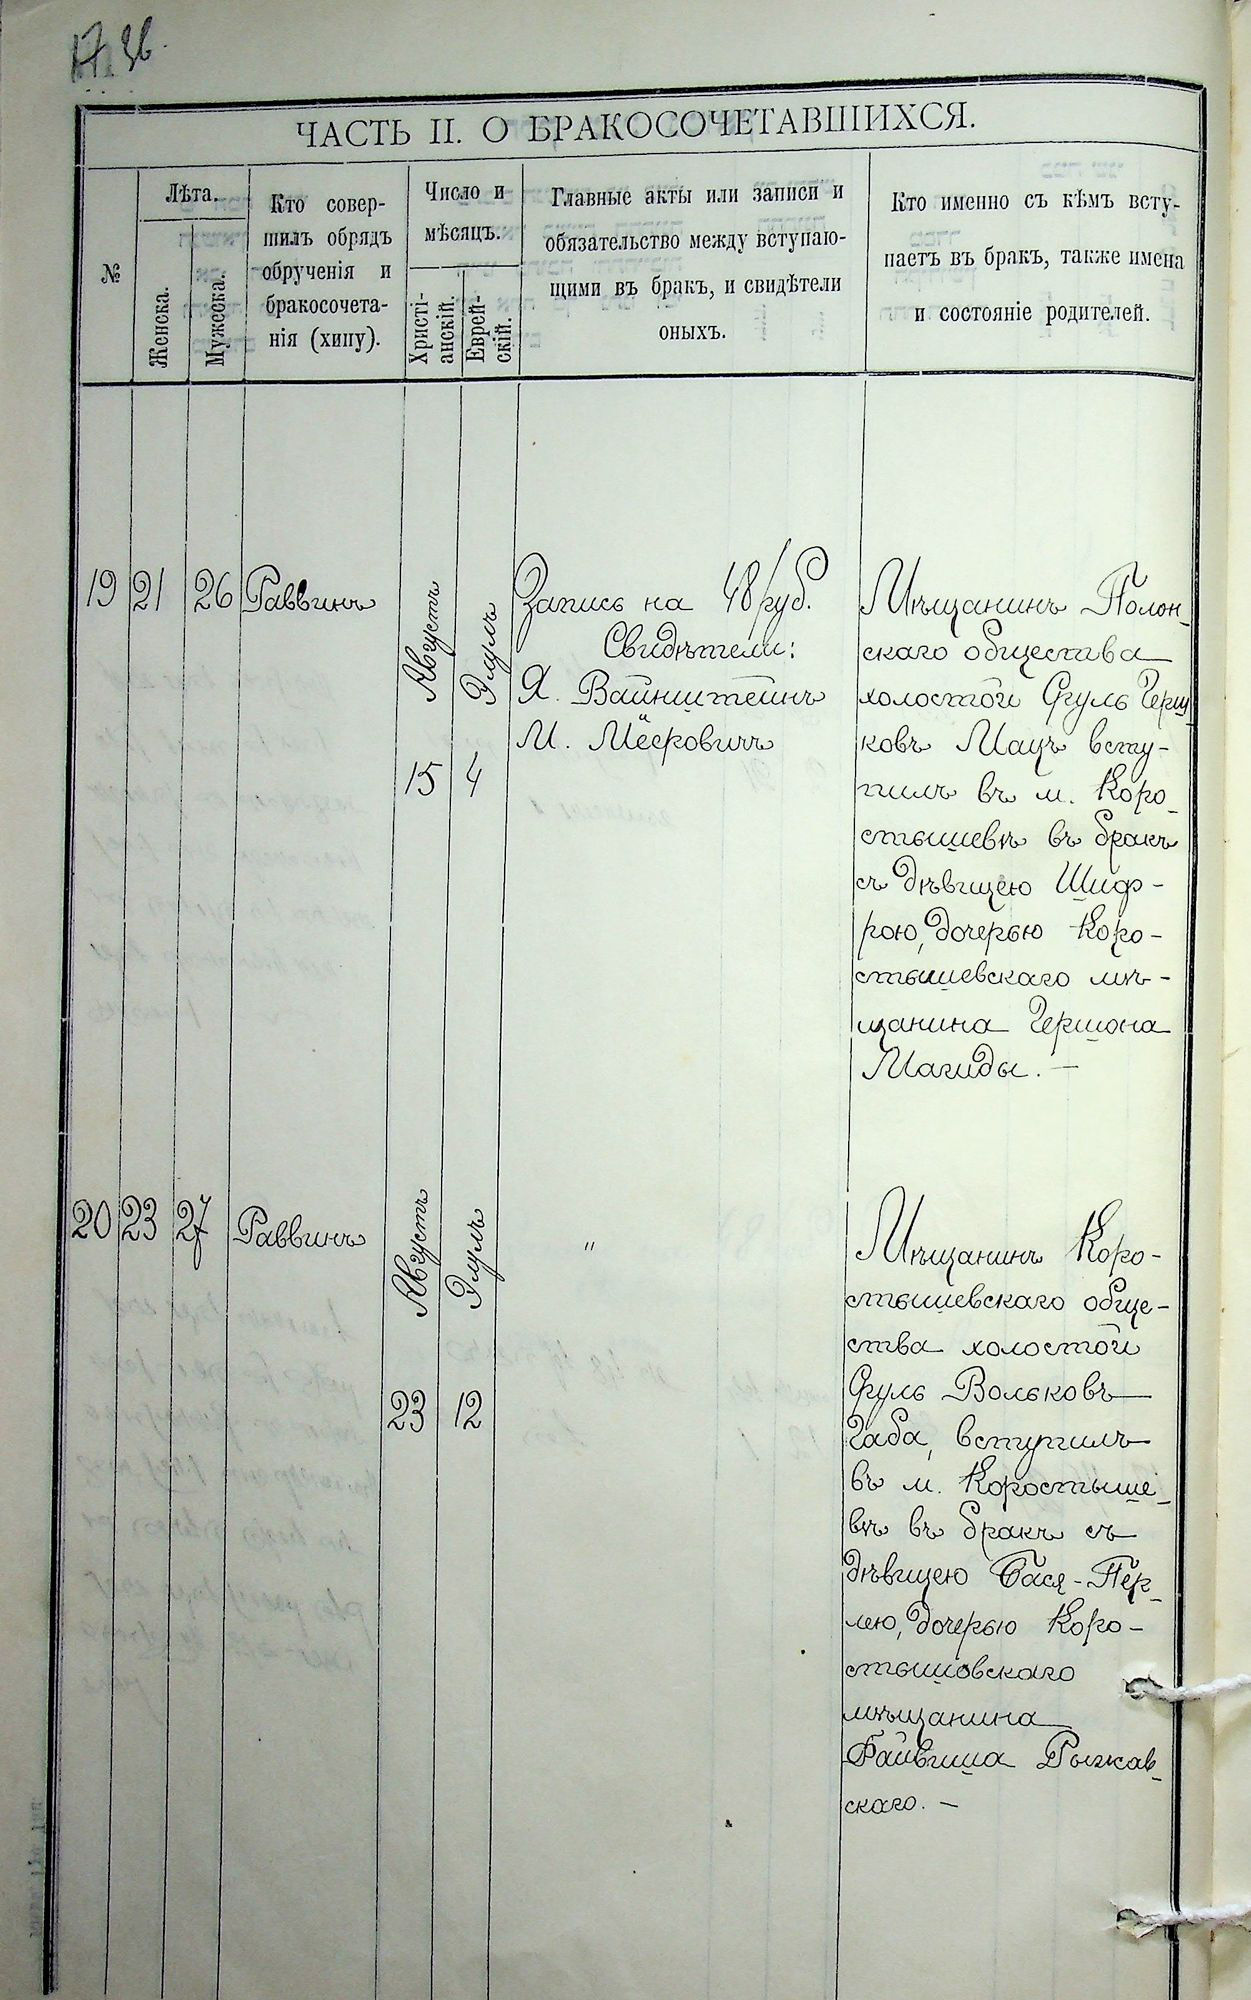 ЧАСТЬ II. О БРАКОСОЧЕТАВШИХСЯ.
№
Лѣта.
Женска.
Мужеска.
Кто совер-
шилъ обрядъ
обрученія и
бракосочета-
нія (хипу).
Число и
мѣсяцъ.
Христі-
анскій.
Еврей-
скій.
Главные акты или записи и
обязательство между вступаю-
щими въ бракъ, и свидѣтели
оныхъ.
Кто именно съ кѣмъ всту-
паетъ въ бракъ, также имена
и состояніе родителей.
19
21
26
Раввинъ
Августъ
15
Элулъ
4
Запись на 48 руб.
Свидѣтели:
Х. Вайнштейнъ
М. Меёровичъ
Мѣщанинъ Полон-
скаго общества
холостой Сруль Герш-
ковъ Мацъ всту-
пилъ въ м. Коро-
стышевѣ въ бракъ
съ дѣвицею Шиф-
рою, дочерью Коро-
стышевскаго мѣ-
щанина Гершона
Магиды. —
20
23
27
Раввинъ
Августъ
23
Элулъ
12
"
Мѣщанинъ Коро-
стышевскаго обще-
ства холостой
Сруль Вольковъ
Габа, вступилъ
въ м. Коростыше-
вѣ въ бракъ съ
дѣвицею Бася-Пер-
лею, дочерью Коро-
стышовскаго
мѣщанина
Файвиша Рыжав-
скаго. —